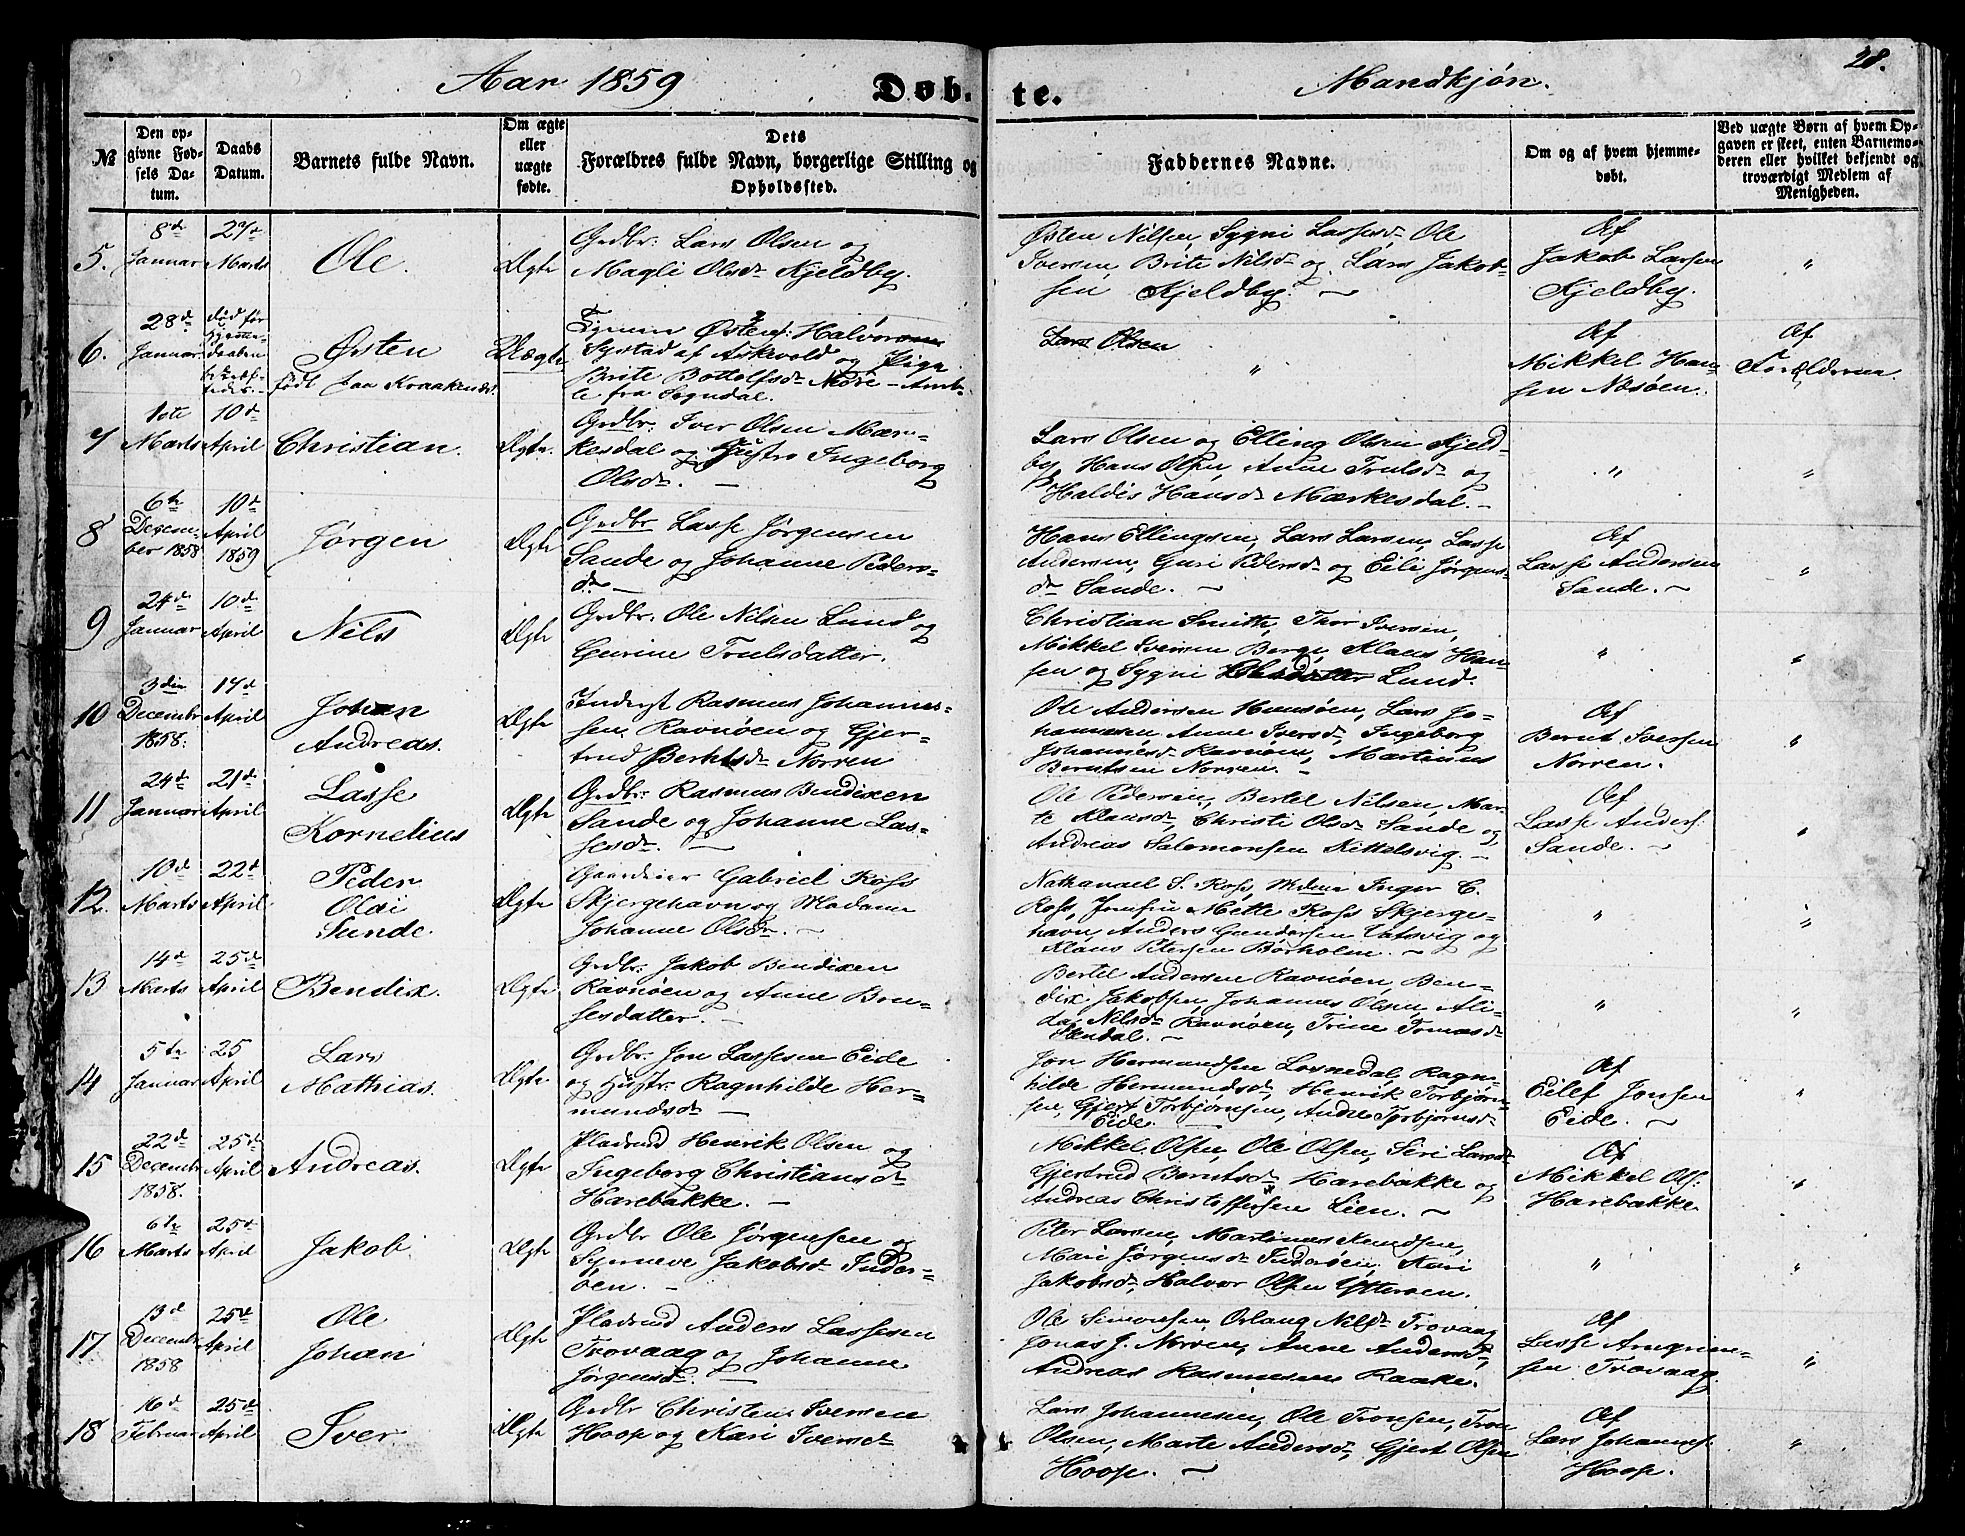 28.
Aar 1859
Døb- te.
Mandkjøn.
№
Den op-
givne Fød-
sels Da-
tum.
Daabs
Datum.
Barnets fulde Navn.
Om ægte
eller
uægte
fødte.
Dets
Forældres fulde Navn, borgerlige Stilling og
Opholdssted.
Faddernes Navne.
Om og af hvem hjemme-
døbt.
Ved uægte Børn af hvem Op-
gaven er skeet, enten Barnemo-
deren eller hvilket bekjendt og
troværdigt Medlem af
Menigheden.
5.
8de
Januar
27de
Marts
Ole.
Ægte
Grdbr: Lars Olsen og
Magli Olsdr Kjeldby.
Østen Nilsen, Sygni Lassesdr Ole
Iversen, Brite Nilsdr og Lars Jakob-
sen Kjeldby. ~
Af
Jakob Larsen
Kjeldby.
"
6.
28de
Januar
død før
daaben
Østen
født paa Kraakenes.
Uægte
Halvorsen
Systad af Askevold og Pige
Brite Bottolfsdr Nedre-Amb-
le fra Sogndal.
Lars Olsen
"
Af
Mikkel Han-
sen Næsøen.
Af
Forældrene
7
1ste
Marts
10de
April
Christian.
Ægte.
Grdbr: Iver Olsen Mær-
kesdal og Hustro Ingeborg
Olsdr. —
Lars Olsen og Elling Olsen Kjeld-
by, Hans Olsen, Anne Trulsdr og
Haldis Hansdr Mærkesdal. -
"
"
8
6te
Decem-
ber 1858
10de
April
1859
Jørgen
Ægte
Grdbr. Lasse Jørgensen
Sande og Johanne Peders-
dr —
Hans Ellingsen, Lars Larsen, Lasse
Andersen, Guri Pedersdr og Eili Jørgens-
dr Sande. ~
Af
Lasse Andersen
Sande. ~
"
9
24de
Januar
10de
April
Nils
Ægte
Grdbr: Ole Nilsen Lund og
Gurine Trulsdatter.
Christian Smith, Thor Iversen,
Mikkel Iversen Berge, Klaus Han-
sen og Sygni Olesdatter Lund.
"
"
10
3die
Decembr
1858.
17de
April
Johan
Andreas.
Ægte
Inderst Rasmus Johannes-
sen Ravnøen og Gjer-
trud Berntsdr Norren
Ole Andersen Hunsøen, Lars Jo-
hannesen, Anne Iversdr, Ingeborg
Johannesdr Ravnøen, Martinus
Berntsen Norren. -
Af
Bernt Iversen
Norren.
"
11
24de
Januar
21de
April
Lasse
Kornelius
Ægte
Grdbr: Rasmus Bendixen
Sande og Johanne Las-
sesdr. —
Ole Pedersen, Bertel Nilsen, Mar-
te Klausdr, Christi Olsdr Sande og
Andreas Salomonsen Kittelsvig. -
Af
Lasse Anders:
Sande. ~
"
12.
10de
Marts
22de
April
Peder
Olai
Sunde.
Ægte
Gaardeier Gabriel Koss
Skjergehavn og Madame
Johanne Olsdr. ~
Nathanael S. Koss, Mdme Inger C.
Koss, Jomfru Mette Koss Skjerge-
havn, Anders Gundersen Vatsvig og
Klaus Petersen Borholm. ~
"
"
13
14de
Marts
25de
April
Bendix.
Ægte
Grdbr. Jakob Bendixen
Ravnøen og Anne Bon-
sesdatter. —
Bertel Andersen Ravnøen, Ben-
dix Jakobsen, Johannes Olsen, Ali-
da Nilsdr Ravnøen, Trine Tomasdr
Stendal. ~
"
"
14
5te
Januar
25
April
Lars
Mathias.
Ægte
Grdbr: Jon Lassesen Eide
og Hustr: Ragnhilde Her-
mundsdr —
Jon Hermundsen Losnedal, Ragn-
hilde Hermundsdr, Henrik Torbjørn-
sen, Gjert Torbjørnsen, Andre Torbjørnsdr
Eide —
Af
Eilef Jonsen
Eide. ~
"
15
22de
Decembr
1858.
25de
April
Andreas.
Ægte
Pladsmd Henrik Olsen og
Ingeborg Christiansdr
Harebakke. —
Mikkel Olsen, Ole Olsen, Siri Larsdr
Gjertrud Berntsdr Harebakke og
Andreas Christoffersen Lien. ~
Af
Mikkel Ols:
Harebakke
"
16
6te
Marts
25de
April
Jakob.
Ægte
Grdbr Ole Jørgensen og
Synneve Jakobsdr Inder-
øen. —
Peder Larsen, Martinus Knudsen,
Mari Jørgensdr Inderøen, Kari
Jakobsdr, Halvor Olsen Ytterøen.
"
"
17
13de
Decembr
1858
25de
April
Ole
Johan
Ægte
Pladsmd Anders Lassesen
Trovaag og Johanne
Jørgensdr. —
Ole Simonsen, Oslaug Nilsdr Trovaag
Jonas J. Norven, Anne Andersdr,
Andreas Rasmusen Raake.
Af
Lasse Arngrim-
sen Trovaag
"
18
16de
Februar
25de
April
Iver.
Ægte
Grdbr Christen Iversen
Hoop og Kari Iversdr
Lars Johannesen, Ole Tronsen, Tron
Olsen, Marte Andersdr, Gjert Olsen
Hoop. ~
Af
Lars Johannes:
Hoop.
"